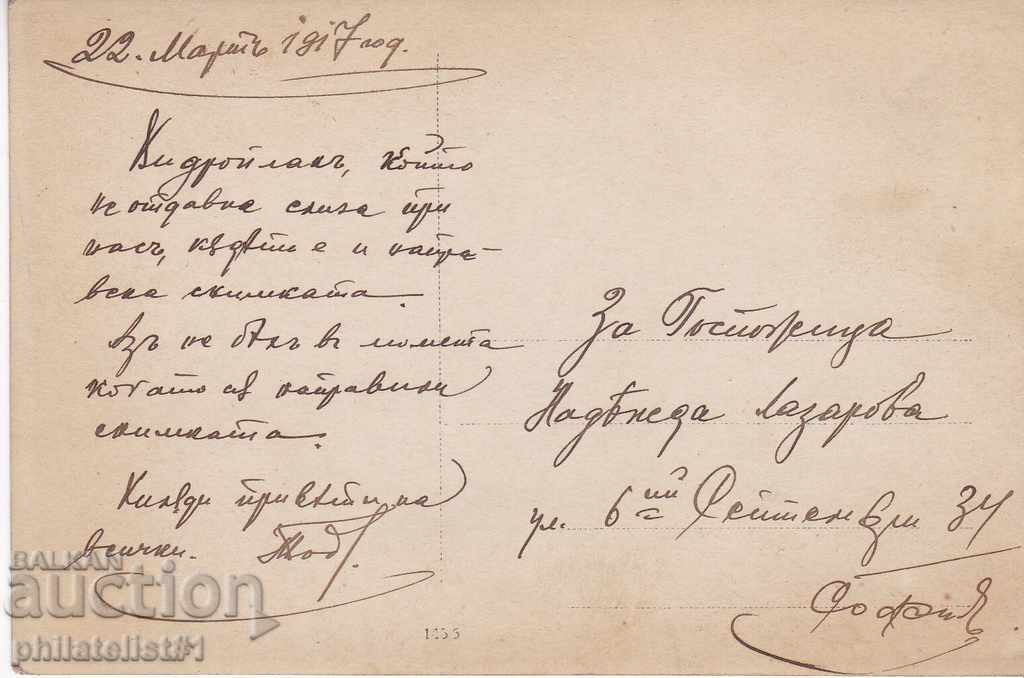 22. Мартъ 1917 год.
Хидропланъ, който
не отдавна слиза при
насъ, кѫдѣто е и напра-
вена снимката.
Азъ не бѣхъ въ момента
когато сѫ направили
снимката.
Хиляди привѣти на
всички. Тод.
За Госпожица
Надѣжда Лазарова
ул. 6ий Септемврий 34
София
1455
BALKAN
auction
philatelist#1